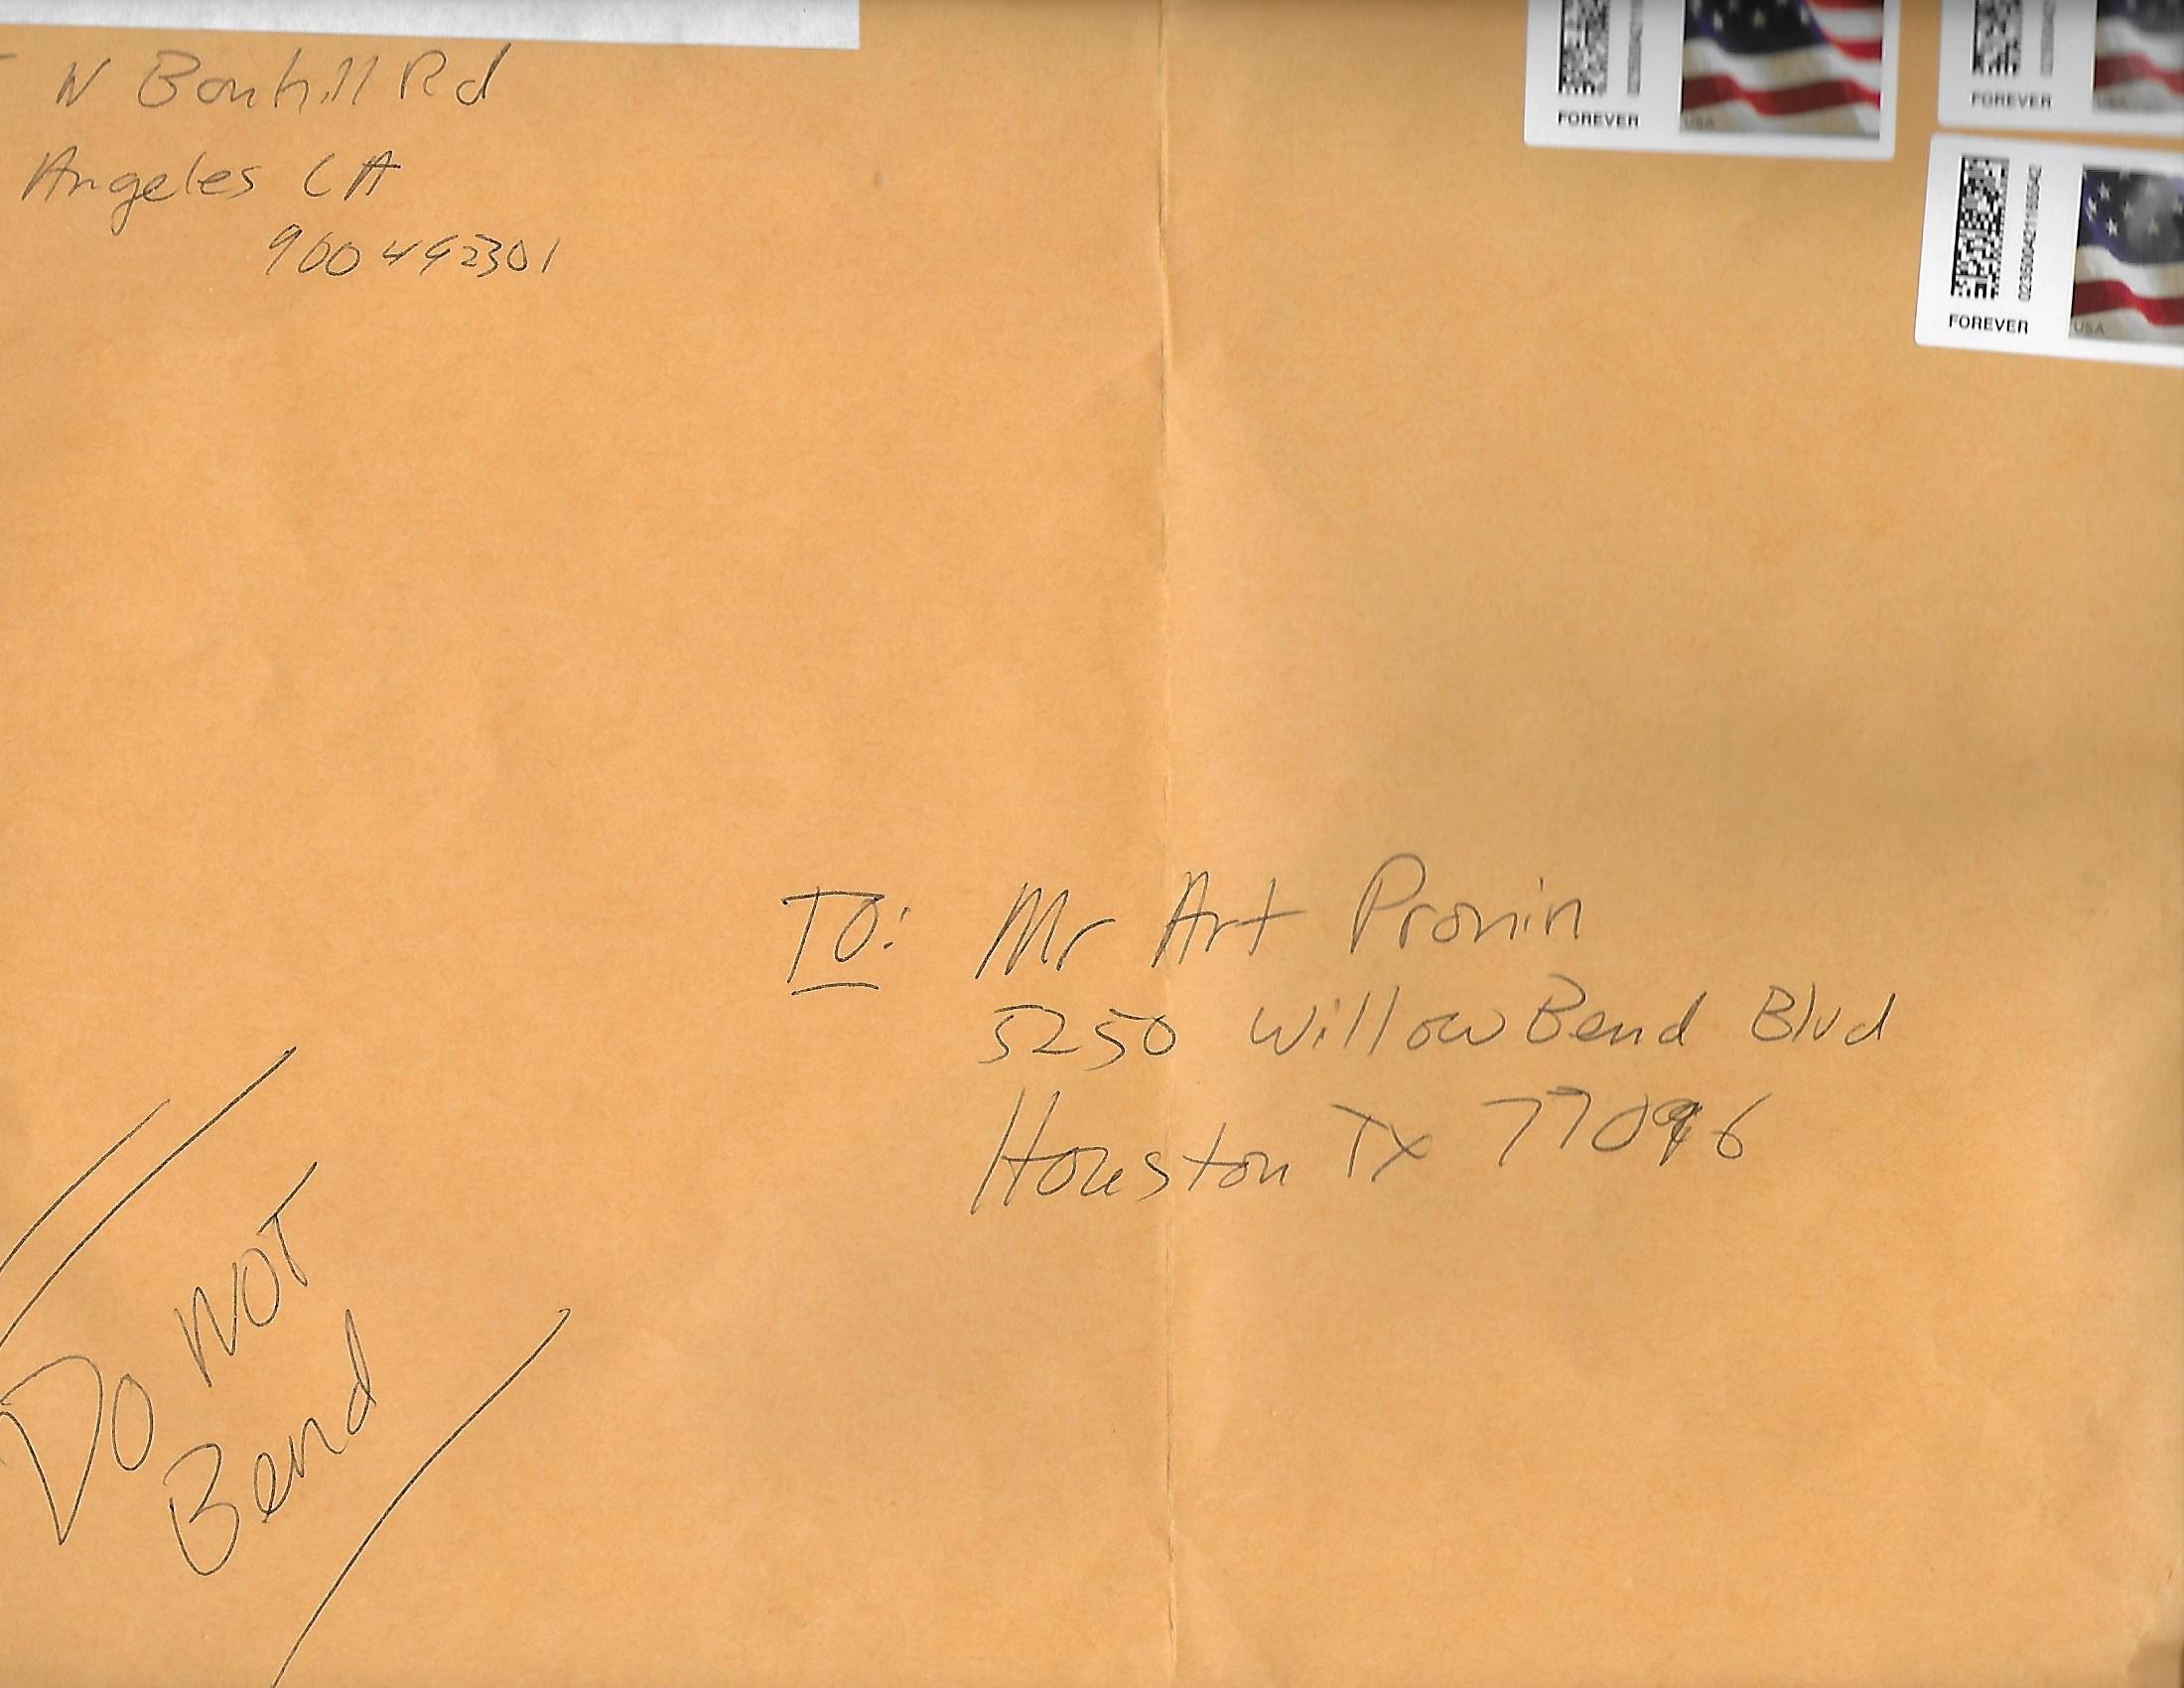 N Bonhill Rd
Angeles CA
900492301
FOREVER
USA
FOREVER
USA
022350004211655542
FOREVER
USA
TO: Mr Art Pronin
5250 Willow Bend Blvd
Houston TX 77096
Do NOT
Bend